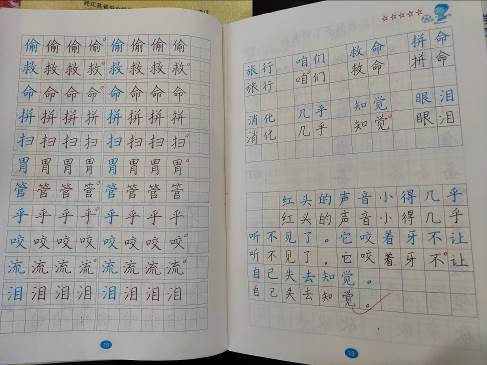 偷偷偷偷偷偷偷
救救救救救救救
命命命命命命命
拼拼拼拼拼拼拼
扫扫扫扫扫扫扫
胃胃胃胃胃胃胃
管管管管管管管
乎乎乎乎乎乎乎
咬咬咬咬咬咬咬
流流流流流流流
泪泪泪泪泪泪泪
旅行 咱们 救命 拼命
旅行 咱们 救命 拼命
消化 几乎 知觉 眼泪
消化 几乎 知觉 眼泪
红头的声音小得几乎
红头的声音小得几乎
听不见了。它咬着牙不让
听不见了。它咬着牙不让
自己失去知觉。
自己失去知觉。